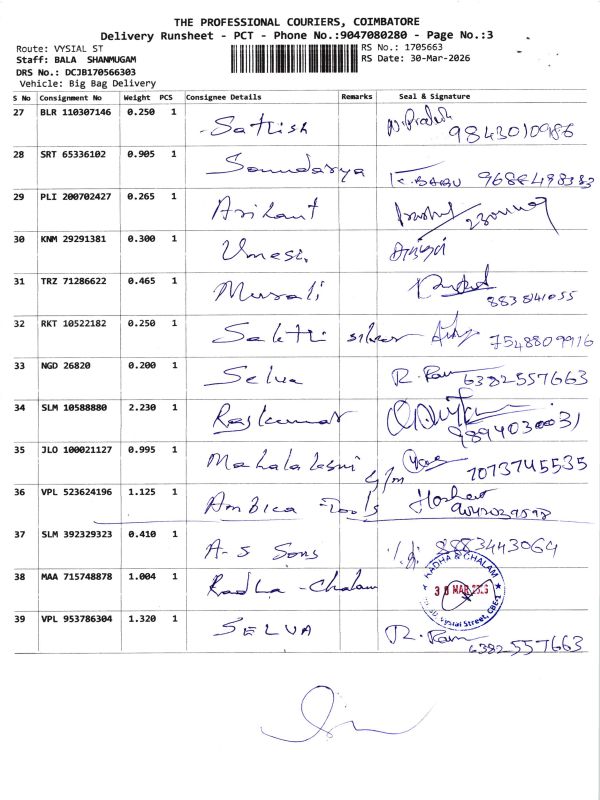 THE PROFESSIONAL COURIERS, COIMBATORE
Delivery Runsheet - PCT - Phone No.:9047080280 - Page No.:3
Route: VYSIAL ST
RS No.: 1705663
Staff: BALA SHANMUGAM
RS Date: 30-Mar-2026
DRS No.: DCJB170566303
Vehicle: Big Bag Delivery
S No Consignment No Weight PCS Consignee Details Remarks Seal & Signature
27 BLR 110307146 0.250 1 Sathish 9843010986
28 SRT 65336102 0.905 1 Soundarya K. BABU 9688498383
29 PLI 200702427 0.265 1 Arihant
30 KNM 29291381 0.300 1 Umesh
31 TRZ 71286622 0.465 1 Murali
32 RKT 10522182 0.250 1 Sakthi silver 7548809916
33 NGD 26820 0.200 1 Selva R. Ram 6382557663
34 SLM 10588880 2.230 1 Rajkumar 9894030031
35 JLO 100021127 0.995 1 Mahalakshmi 7073745535
36 VPL 523624196 1.125 1 Ambica Tools
37 SLM 392329323 0.410 1 A-S Sons 8883443064
38 MAA 715748878 1.004 1 Radha-Chalam
RADHA & CHALAM
30 MAR 2026
Vysial Street, CBE-1
39 VPL 953786304 1.320 1 SELVA R. Ram 6382557663